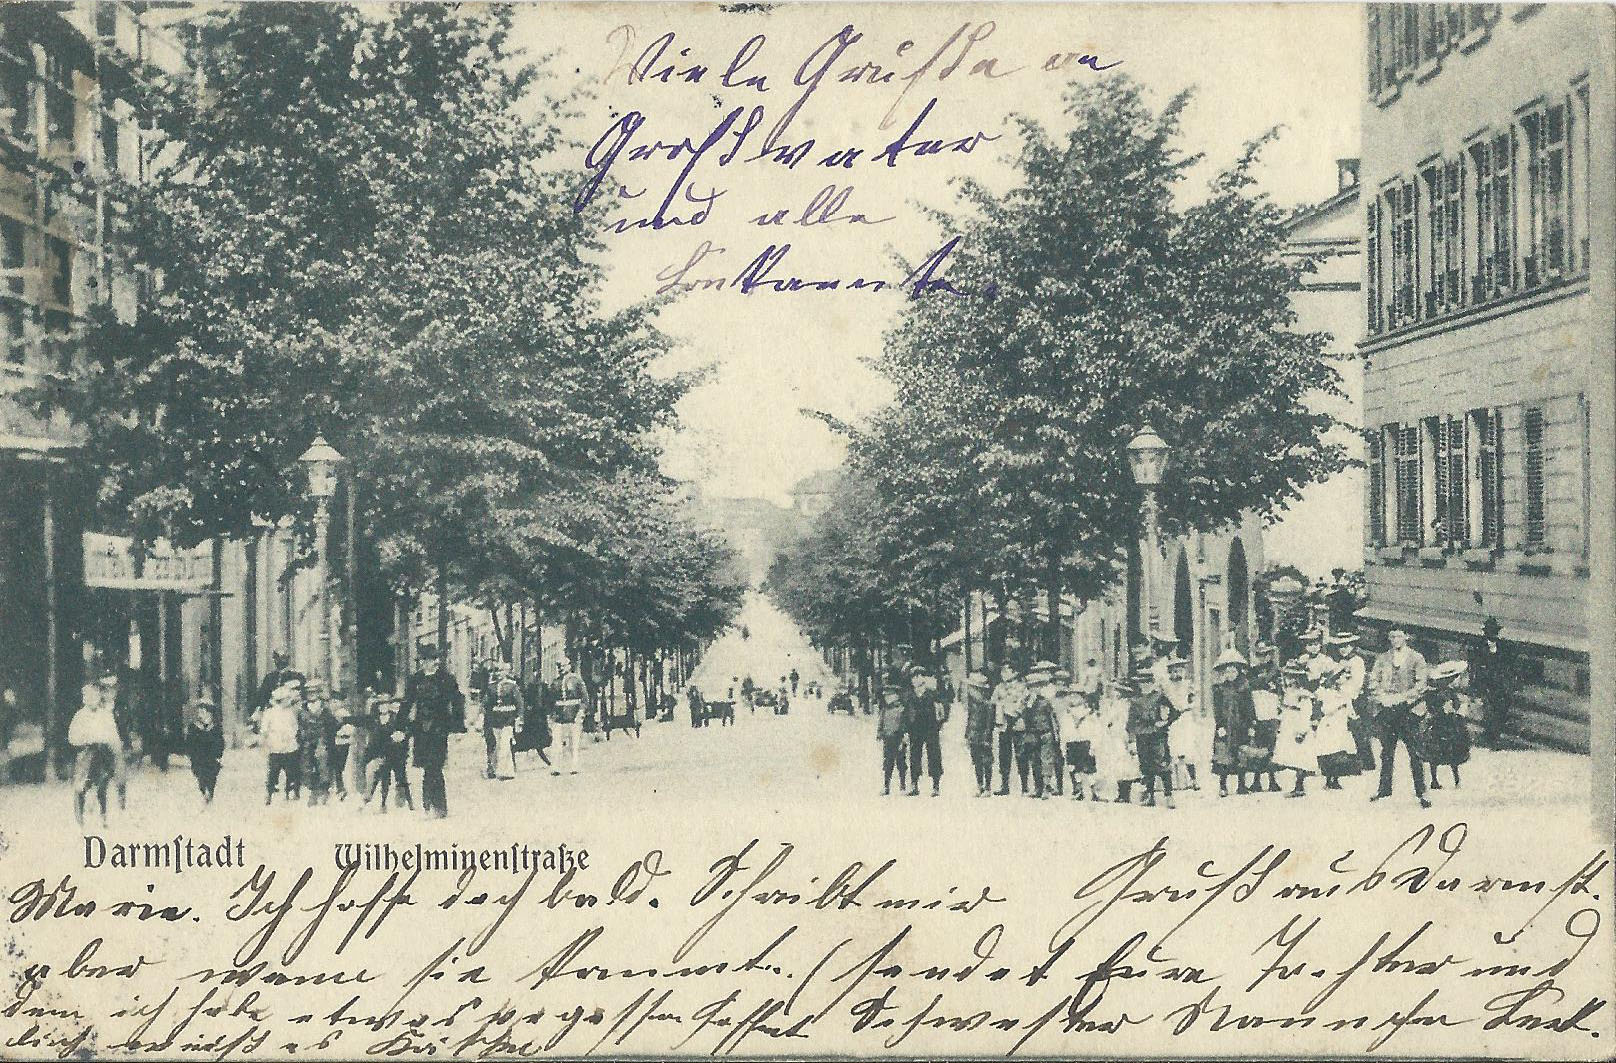 Viele Grüße an
Großvater
und alle
Bekannte.
Darmstadt Wilhelminenstraße
Marie. Ich hoffe doch bald. Schreibt mir
Gruß aus Darmst.
aber wann sie kommt. (sendet Eure Tochter und
dem ich habe etwas vergessen Schwester
es